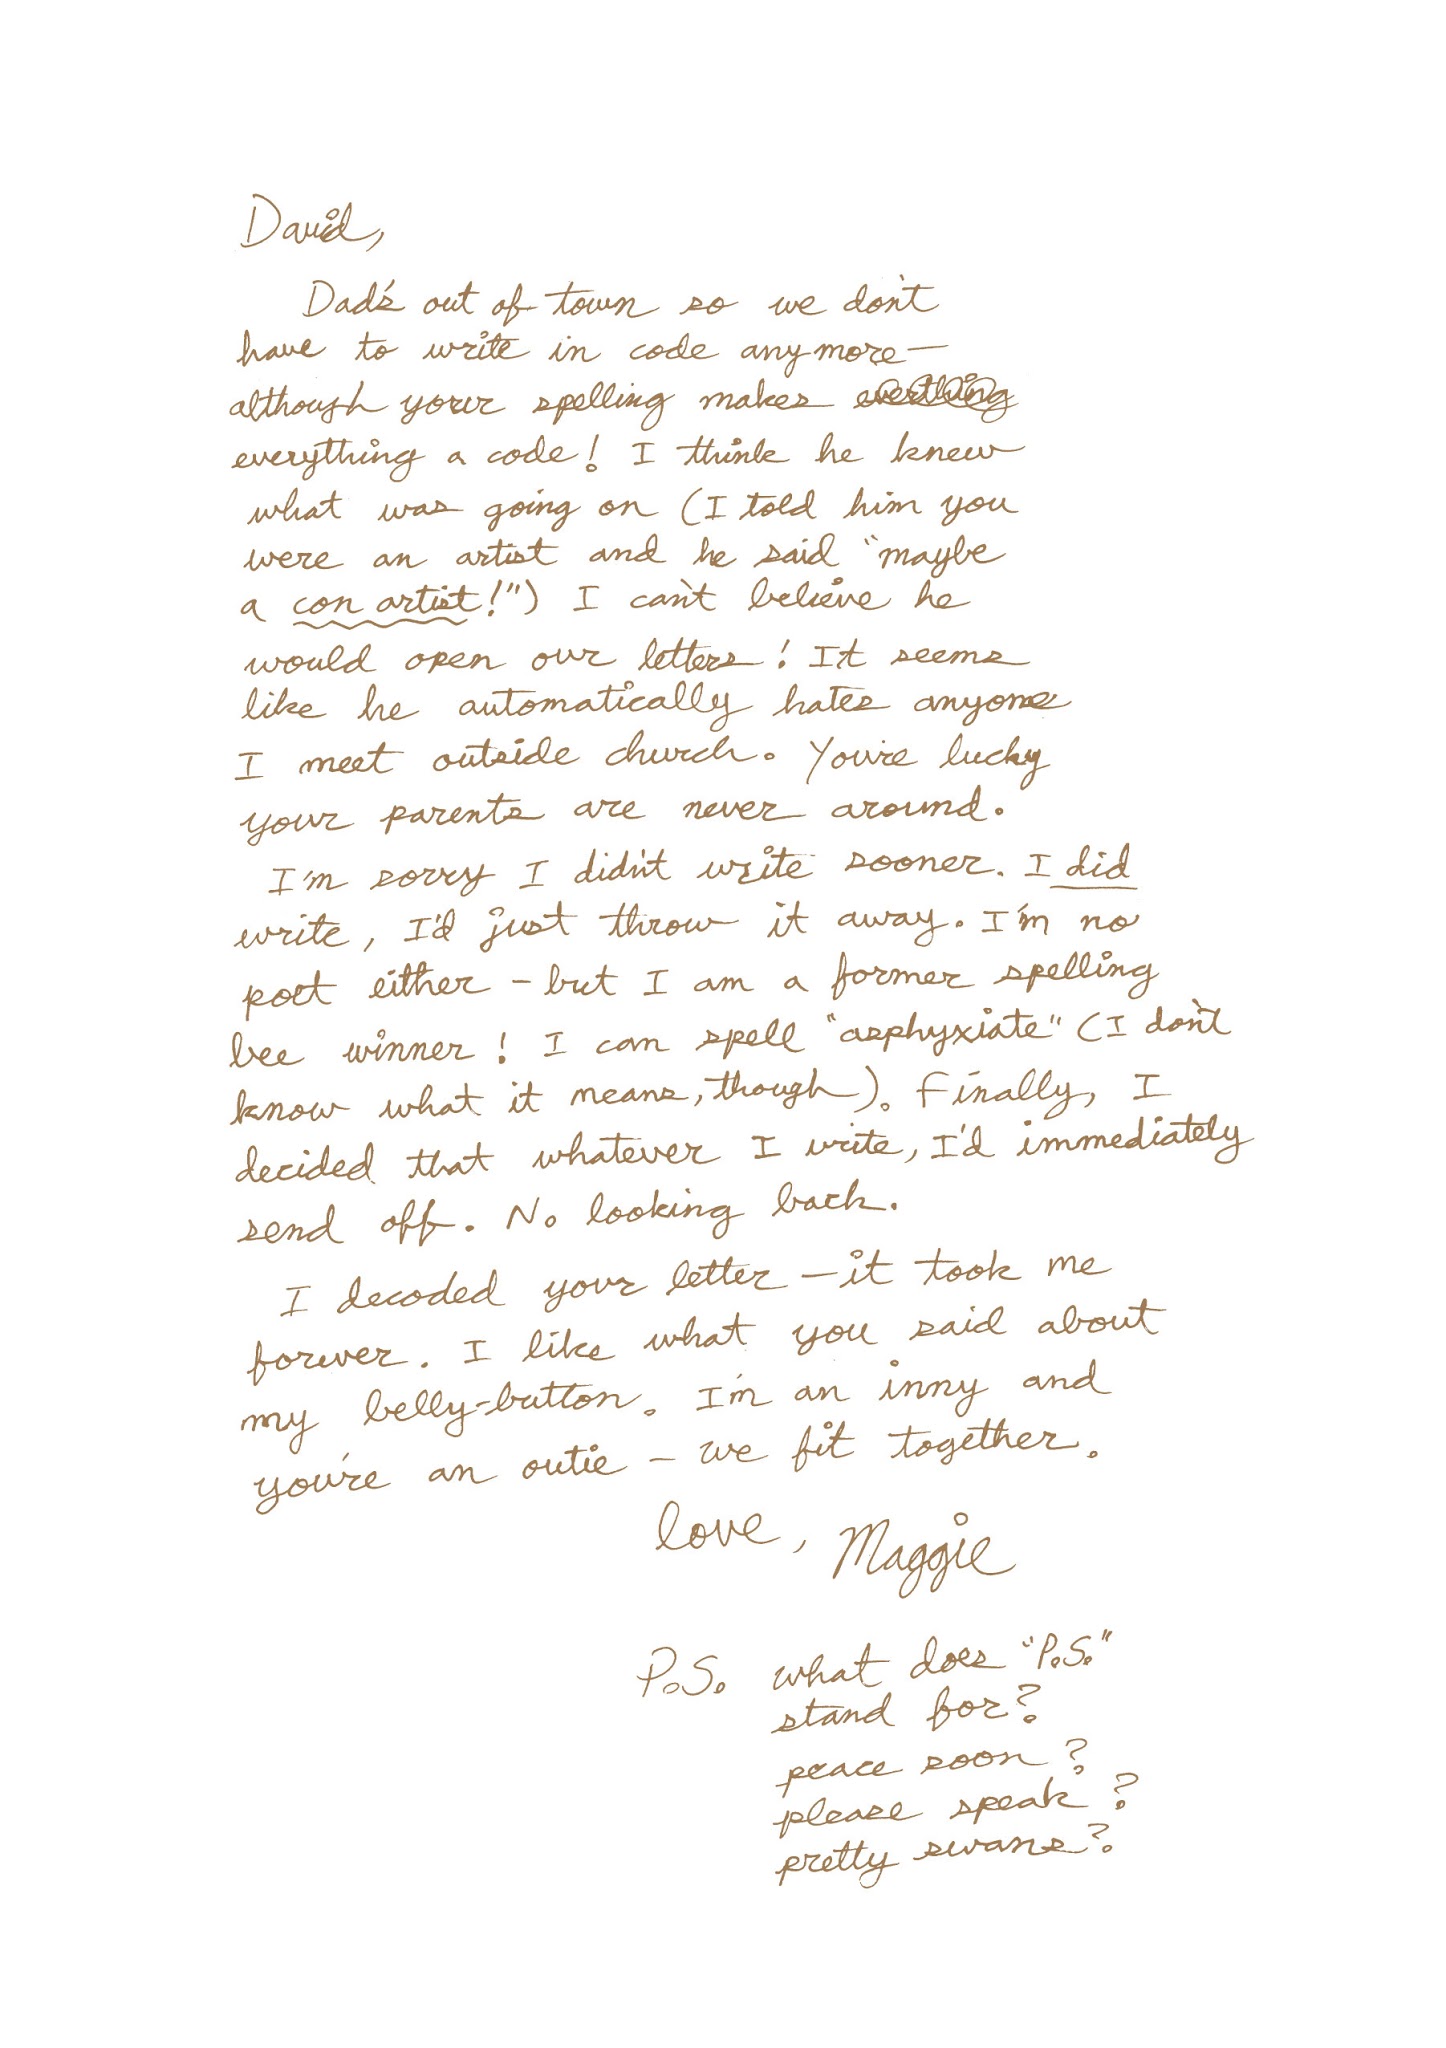 David,
Dad's out of town so we don't
have to write in code anymore—
although your spelling makes everthing
everything a code! I think he knew
what was going on (I told him you
were an artist and he said "maybe
a con artist!") I can't believe he
would open our letters! It seems
like he automatically hates anyone
I meet outside church. You're lucky
your parents are never around.
I'm sorry I didn't write sooner. I did
write, I'd just throw it away. I'm no
poet either – but I am a former spelling
bee winner! I can spell "asphyxiate" (I don't
know what it means, though). Finally, I
decided that whatever I write, I'd immediately
send off. No looking back.
I decoded your letter – it took me
forever. I like what you said about
my belly-button. I'm an inny and
you're an outie – we fit together.
love, Maggie
P.S. what does "P.S."
stand for?
peace soon?
please speak?
pretty swans?